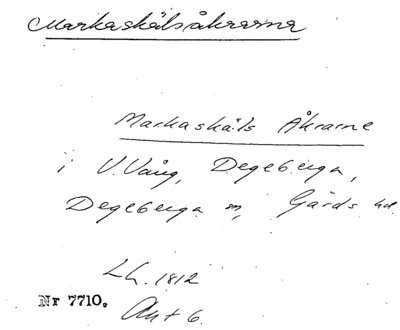 Markaskälsåkrarna
Markaskäls Åkrarne
i V. Vång, Degeberga,
Degeberga sn, Gärds hd.
Lh. 1812
Nr 7710.
Akt 6.